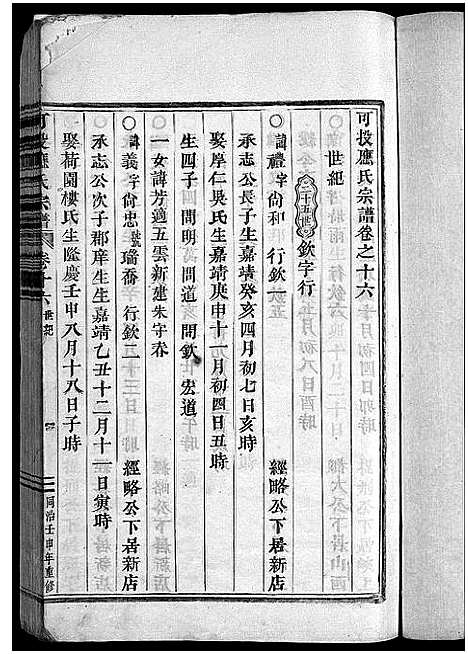 可投應氏宗譜卷之十六
世紀
二十五世 欽字行
○諱禮字尚和 行欽一 經略公下居新店
承志公長子生嘉靖癸亥四月初七日亥時
娶岸仁吳氏生嘉靖庚申十一月初四日丑時
生四子 問明 問欽 宏道
一女諱芳適五雲新建朱字春
○諱義字尚忠號瑤喬 行欽二 經略公下居新店
承志公次子郡庠生生嘉靖乙丑十二月十一日寅時
娶荷園樓氏生隆慶壬申八月十八日子時
可投應氏宗譜 卷十六 世紀
同治壬申年重修